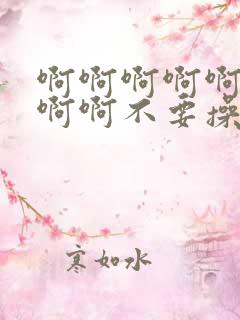 啊啊啊啊啊
啊啊不要操
寒如水